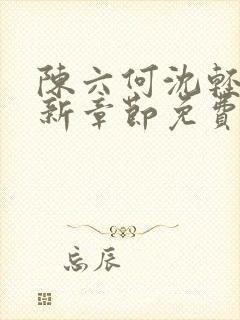 陳六何沈輕
新章節免費
忘辰